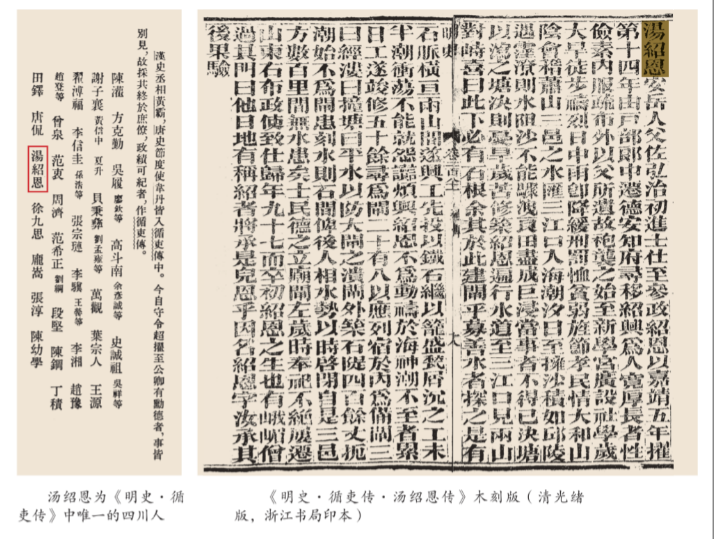 漢史丞相黃霸,唐史節度使韋丹皆入循吏傳中。今自守令超擢至公卿有勳德者,事皆
別見,故採其終於庶僚,政績可紀者,作循吏傳。
陳灌 方克勤 吳履 廖欽等 高斗南 余彥誠等 史誠祖 吳祥等
謝子襄 黃信中 夏升 貝秉彝 劉孟雍等 萬觀 葉宗人 王源
翟溥福 李信圭 孫浩等 張宗璉 李驥 王瑩等 李湘 趙豫
趙登等 曾泉 范衷 周濟 范希正 劉綱 段堅 陳鋼 丁積
田鐸 唐侃 湯紹恩 徐九思 龐嵩 張淳 陳幼學
汤绍恩为《明史·循
吏传》中唯一的四川人
湯紹恩安岳人父佐弘治初進士仕至參政紹恩以嘉靖五年擢
第十四年由戶部郎中遷德安知府尋移紹興爲人寬厚長者性
儉素內服疏布外以父所遺故袍襲之始至新學宮廣設社學歲
大旱徒步禱烈日中雨卽降緩刑罰恤貧弱旌節孝民情大和山
陰會稽蕭山三邑之水匯三江口入海潮汐日至擁沙積如丘陵
遇霪潦則水阻沙不能驟洩良田盡成巨浸當事者不得已決塘
以瀉之塘決則憂旱歲苦修築紹恩遍行水道至三江口見兩山
對峙喜曰此下必有石根余其於此建閘乎募善水者探之果有
明史
石脈橫亘兩山間遂興工先投以鐵石繼以籠盛甃屑沉之工未
半潮衝蕩不能就怨讟煩興紹恩不爲動禱於海神潮不至者累
日工遂竣修五十餘尋爲閘二十有八以應列宿於內爲備閘三
曰經漊曰撞塘曰平水以防大閘之潰閘外築石隄四百餘丈扼
潮始不爲閘患刻水則石間俾後人相水勢以時啓閉自是三邑
方數百里間無水患矣士民德之立廟閘左歲時奉祀不絕屢遷
山東右布政使致仕歸年九十七而卒初紹恩之生也有峨嵋僧
過其門曰他日地有稱紹者將承是兒恩乎因名紹恩字汝承其
後果驗
《明史·循吏传·汤绍恩传》木刻版（清光绪
版，浙江书局印本）